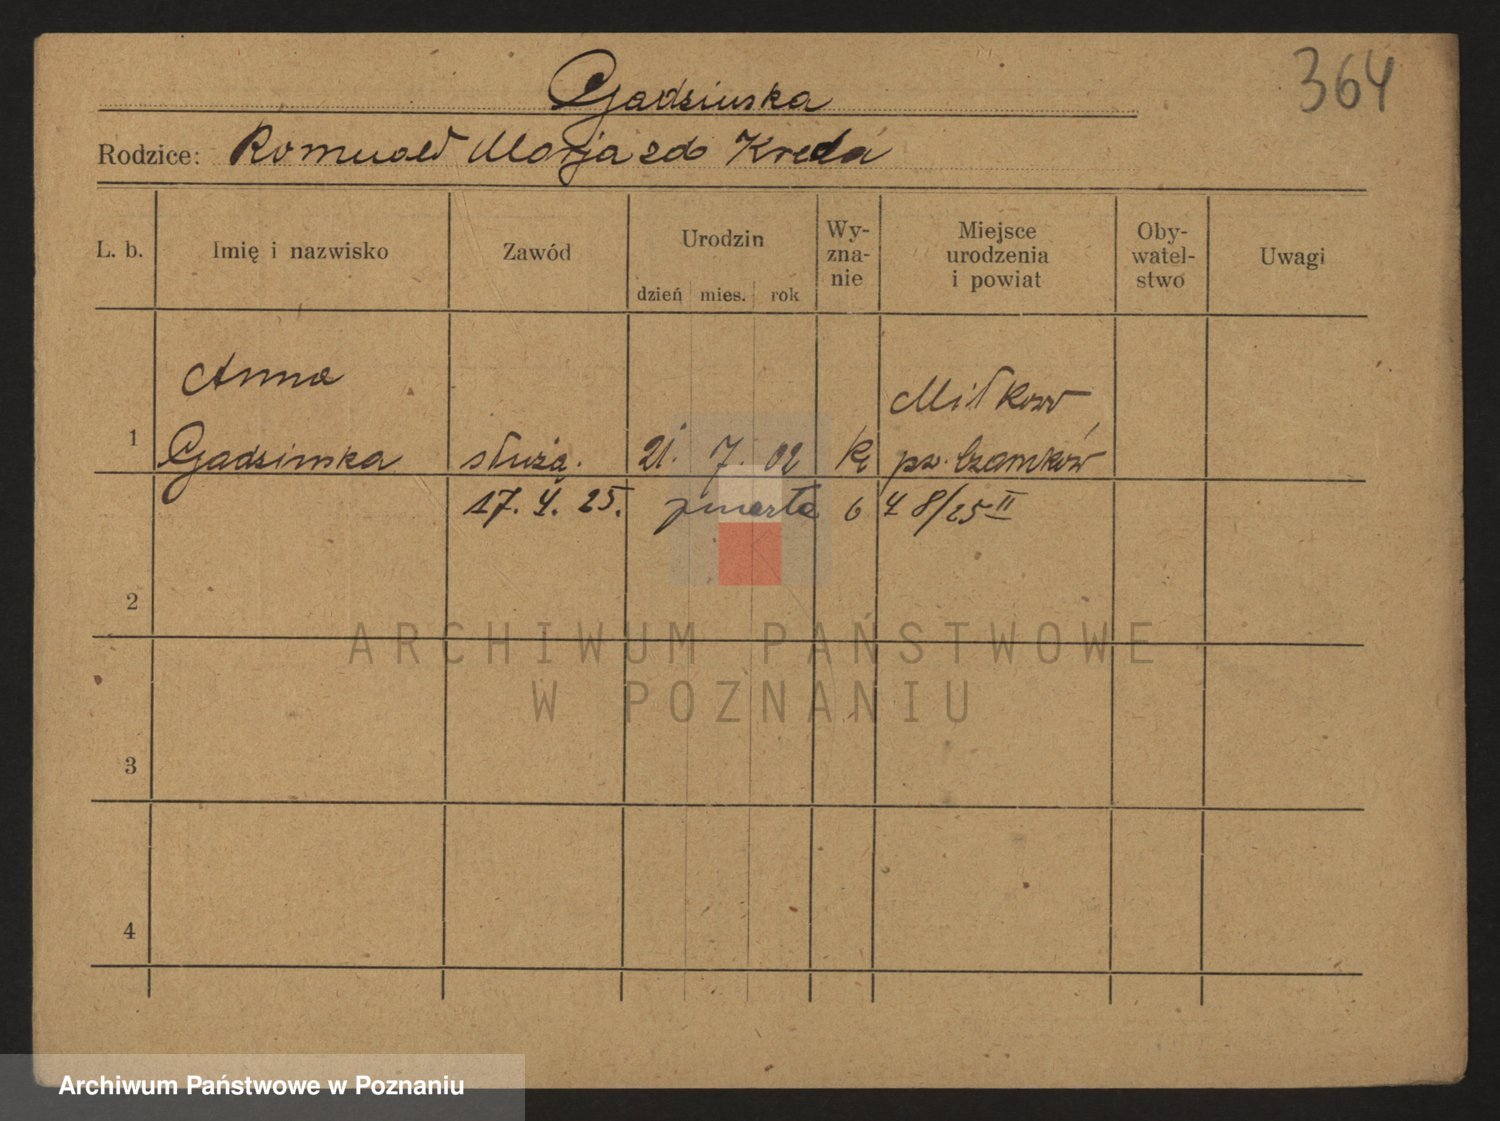 364
Gadzinska
Rodzice: Romuald Marja zdo Kreda
L. b. Imię i nazwisko Zawód Urodzin dzień mies. rok Wy-zna-nie Miejsce urodzenia i powiat Oby-watel-stwo Uwagi
Anna Miłkowo
1 Gadzinska służą. 21. 7. 02 k pw. Czarnków
17. 4. 25. zmarła 6 4 8/25 II
2
ARCHIWUM PAŃSTWOWE
W POZNANIU
3
4
Archiwum Państwowe w Poznaniu